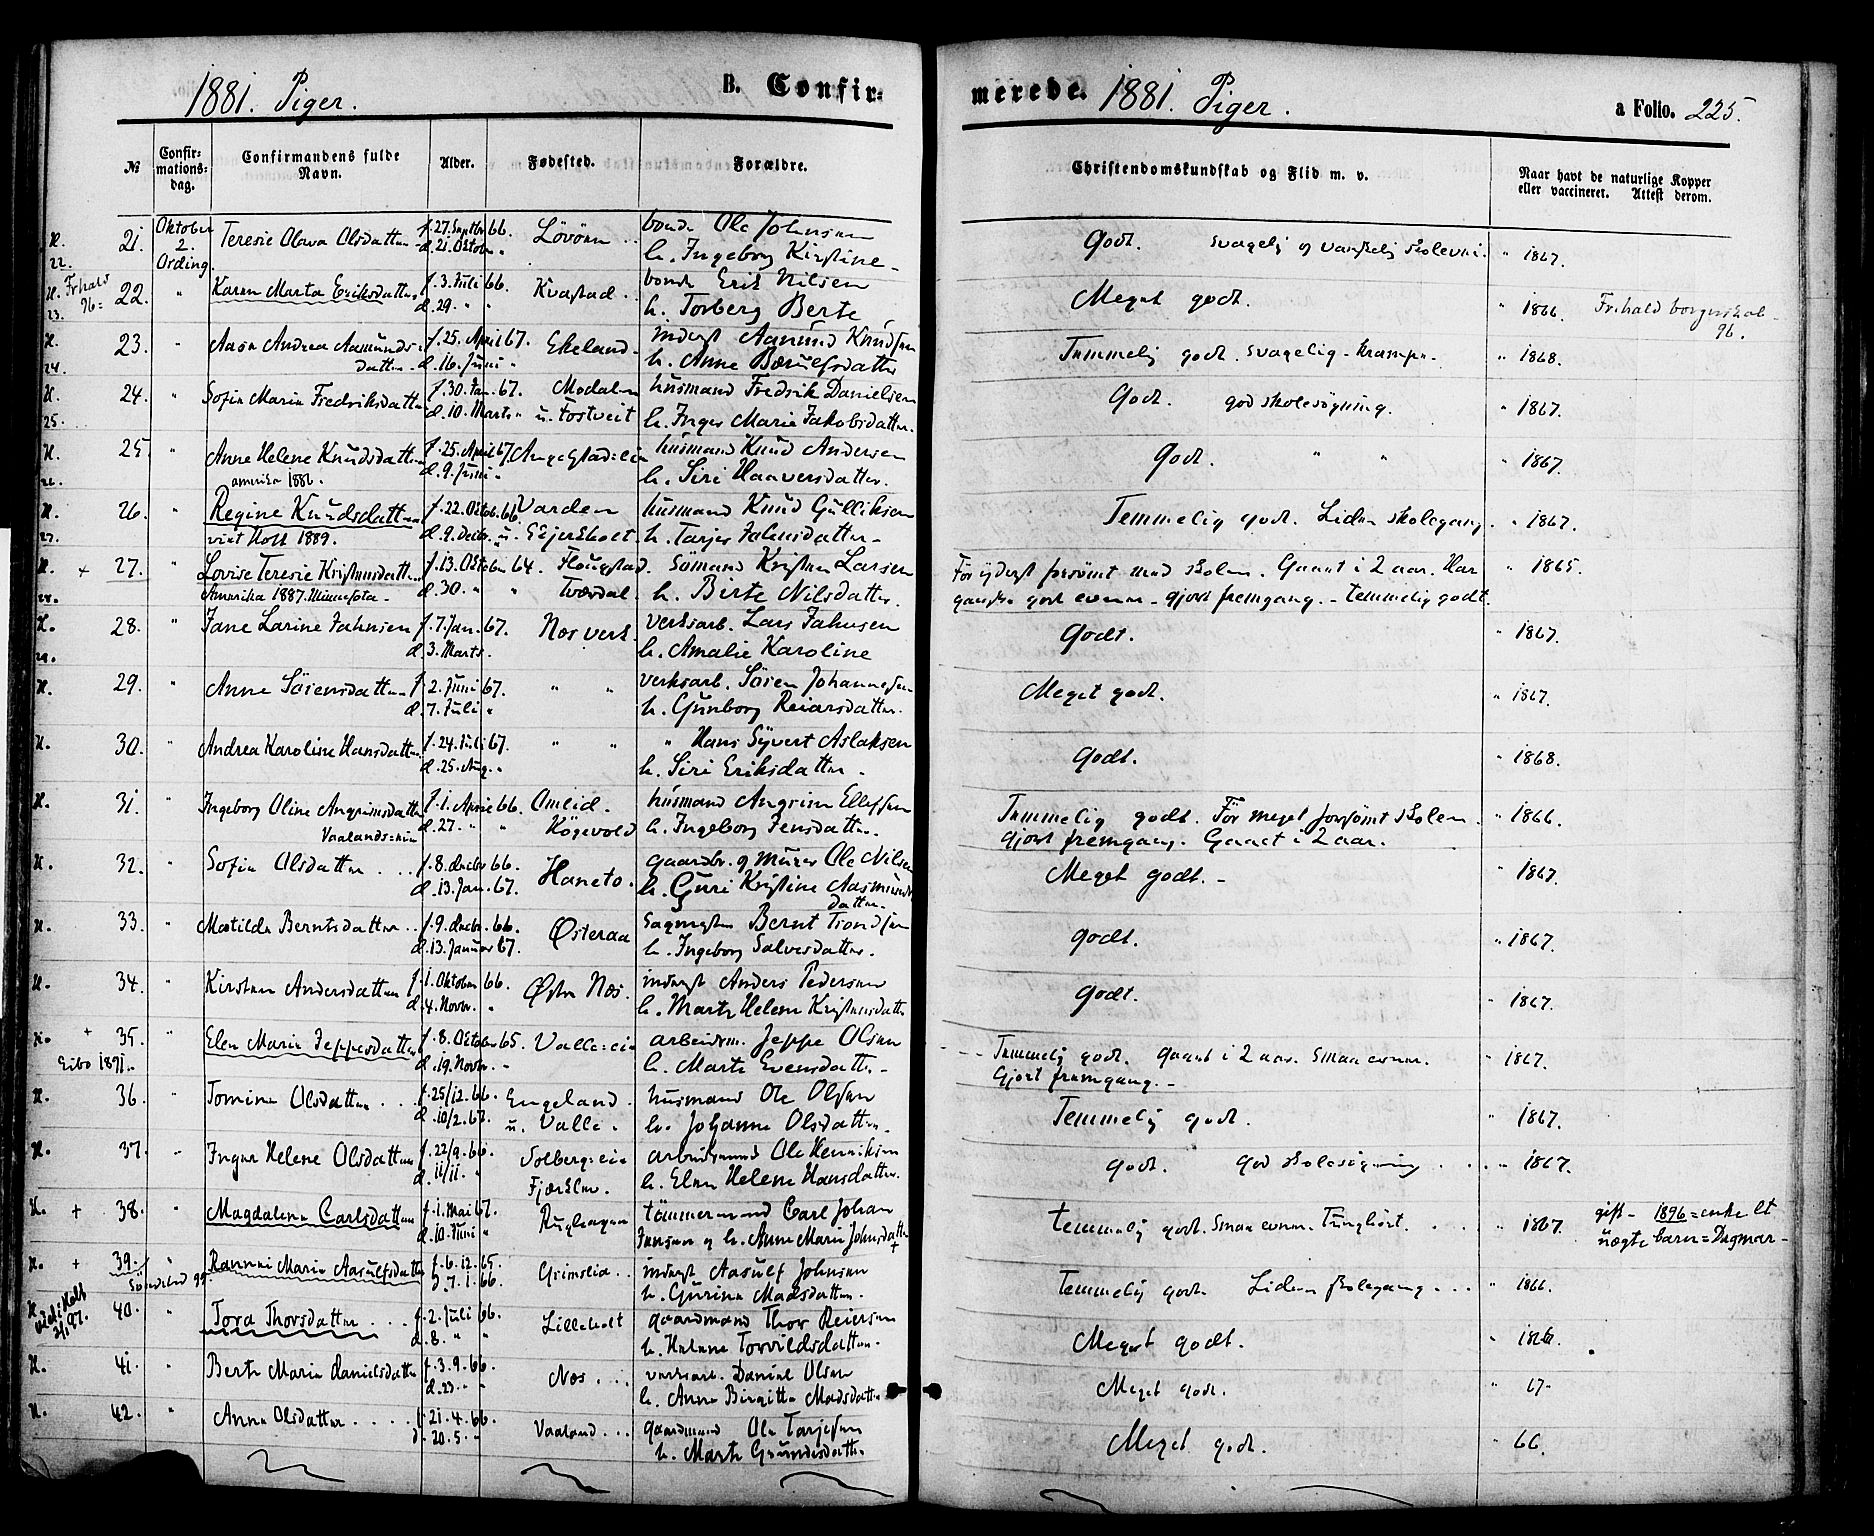 1881. Piger.
B. Confir-
merede. 1881. Piger.
a Folio. 225.
№
Confir-
mations-
dag.
Confirmandens fulde
Navn.
Alder.
Fødested.
Forældre.
Christendomskundskab og Flid m. v.
Naar havt de naturlige Kopper
eller vaccineret. Attest derom.
21. Oktober Teresie Olava Olsdatter f. 27. Septbr 66. Lövöen bonde Ole Johnsen Godt. svagelig og vanskelig skolevei. " 1867.
22. 2. Ording. d. 21. Oktober " h. Ingeborg Kirstine
22. " Karen Marta Eriksdatter f. 3. Juli 66. Kvastad bonde Erik Nilsen Meget godt. " 1866. Frihald borgerskab
23. 96= d. 29. " " h. Torberg Berte 96.
23. " Aasa Andrea Aamunds- f. 25. April 67. Ekeland inderst Aamund Knudsen Temmelig godt. svagelig - krampe " 1868.
24. datter d. 16. Juni " h. Anne Bærulfsdatter
24. " Sofie Marie Fredriksdatter f. 30. Jan. 67. Modalen husmand Fredrik Danielsen Godt. god skolesögning. " 1867.
25. d. 10. Marts " u. Fostveit h. Inger Marie Jakobsdatter.
25. " Anne Helene Knudsdatter f. 25. April 67. Angelstad=eie husmand Knud Andersen Godt. " " " 1867.
26. amerika 1886. d. 9. Juni " h. Siri Haaversdatter.
26. " Regine Knudsdatter f. 22. Oktob. 66. Varden husmand Knud Gulliksen Temmelig godt. Liden skolegang. " 1867.
27. viet Holt 1889. d. 9. Decbr. u. Gjerskolt h. Tarjer Jahnsdatter
+ 27. " Lovise Teresie Kristensdatter f. 13. Oktober 64. Flougstad. Sömand Kristen Larsen För yderst forsömt med skolen. Gaaet i 2 aar. Har " 1865.
28. Amerika 1887. Minnesota d. 30. " " Tværdal. h. Birte Nilsdatter. ganske gode evner - gjort fremgang. - temmelig godt.
28. " Jane Larine Jahnsen f. 7. Jan. 67. Næs verk. verksarb. Lars Jahnsen Godt. " 1867.
29. d. 3. Marts. h. Amalie Karoline
29. " Anne Sörensdatter f. 2. Juni 67. " " verksarb. Sören Johannesen Meget godt. " 1867.
d. 7. Juli " h. Gunborg Reiarsdatter.
30. " Andrea Karoline Hansdatter f. 24. Juli 67. " " " Hans Syvert Aslaksen Godt. " 1868.
d. 25. Aug. " h. Siri Eriksdatter.
31. " Ingeborg Oline Angrimsdatter f. 1. April 66. Omlid. husmand Angrim Ellefsen Temmelig godt. För meget forsömt skolen. " 1866.
Vaalands=eie d. 27. " " Kögevold h. Ingeborg Jensdatter. gjort fremgang. Gaaet i 2 aar.
32. " Sofie Olsdatter f. 8. decbr 66. Haneto. gaardbr. og murer Ole Nilsen Meget godt. - " 1867.
d. 13. Jan. 67. h. Guri Kristine Aasmunds-
datter.
33. " Matilde Berntsdatter f. 9. decbr. 66. Østeraa Sagmester Bernt Trondsen Godt. " 1867.
d. 13. Januar 67. h. Ingeborg Salvesdatter.
34. " Kirsten Andersdatter f. 1. Oktober 66. Østre Næs. inderst Anders Pedersen Godt. " 1867.
d. 4. Novbr. " h. Marte Helene Kristensdatter
+ 35. " Elen Marie Jeppesdatter f. 8. Oktober 65. Valle=eie arbeidsm. Jeppe Olsen Temmelig godt. Gaaet i 2 aar. Smaa evner. " 1867.
Gibo 1891. d. 19. Novbr. " h. Marte Evensdatter Gjort fremgang. -
36. " Tomine Olsdatter f. 25/12. 66. Engeland. husmand Ole Olsen Temmelig godt. " 1867.
d. 10/2. 67. u. Valle. h. Johanne Olsdatter
37. " Inger Helene Olsdatter f. 22/9. 66. Solberg=eie arbeidsmand Ole Henriksen godt. God skolesögning " 1867.
d. 11/11. " Fjærkler. h. Elen Helene Hansdatter.
+ 38. " Magdalene Carlsdatter f. 1. Mai 67. Rughagen tömmermand Carl Johan temmelig godt. Smaa evner. Tunghört. " 1867. gift - 1896 = enke et
d. 10. Juni " Jensen og h. Anne Marie Johnsdatter + uægte barn = Dagmar -
+ 39. " Rannei Marie Aasulfsdatter f. 6. 12. 65. Grimslia inderst Aasulf Johnsen temmelig godt. Liden skolegang " 1866.
Söndeled 99. D. 7. 1. 66. h. Gurine Madsdatter.
40. " Tora Thorsdatter f. 2. Juli 66. Lilleholt gaardmand Thor Reiersen Meget godt. " 1866.
viet: Holt 97. d. 8. " " h. Helene Torvildsdatter.
41. " Berte Marie Danielsdatter f. 3. 9. 66. Næs verksarb. Daniel Olsen Meget godt. " 67.
d. 23. " " h. Anne Birgitte Madsdatter
42. " Anne Olsdatter f. 21. 4. 66. Vaaland gaardmand Ole Tarjesen Meget godt. " 66.
d. 20. 5. " h. Marte Gundersdatter